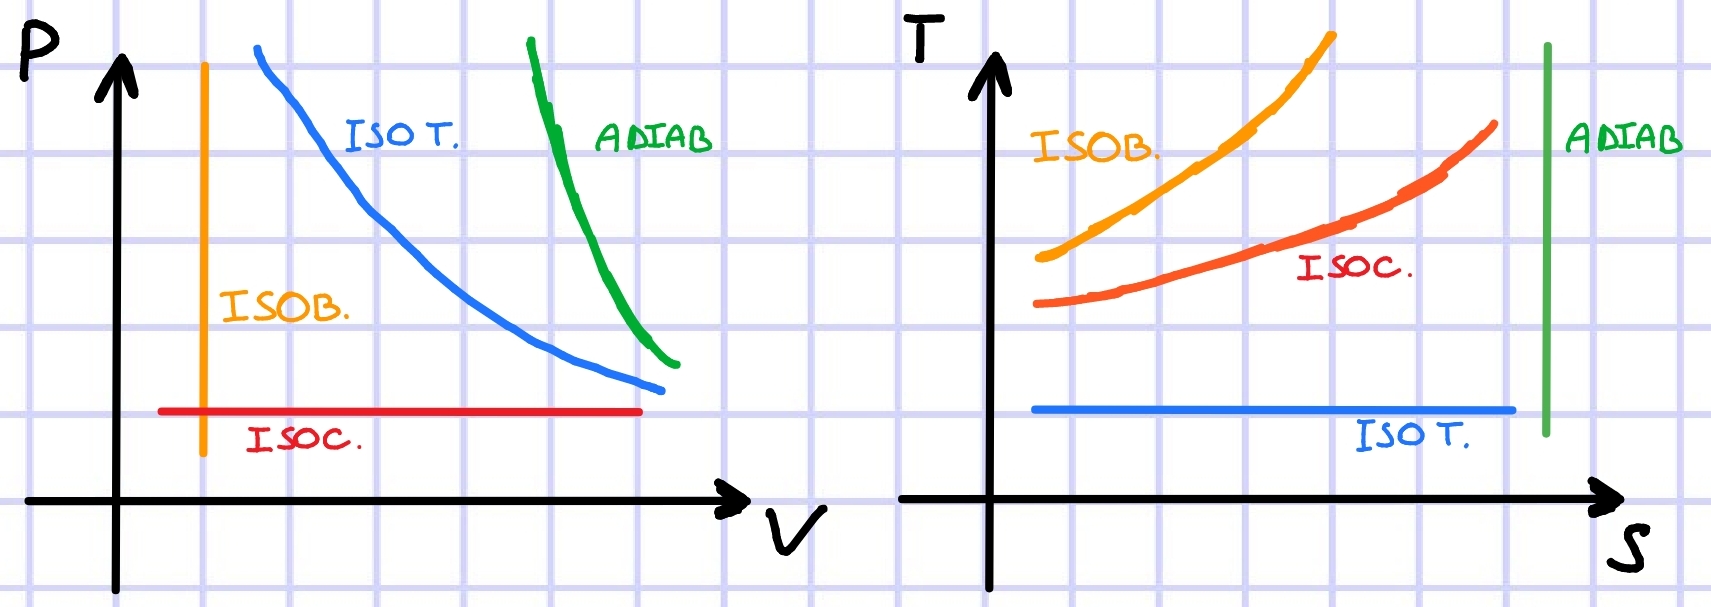 P
ISO T.
ADIAB
ISOB.
ISOC.
V
T
ISOB.
ADIAB
ISOC.
ISO T.
S